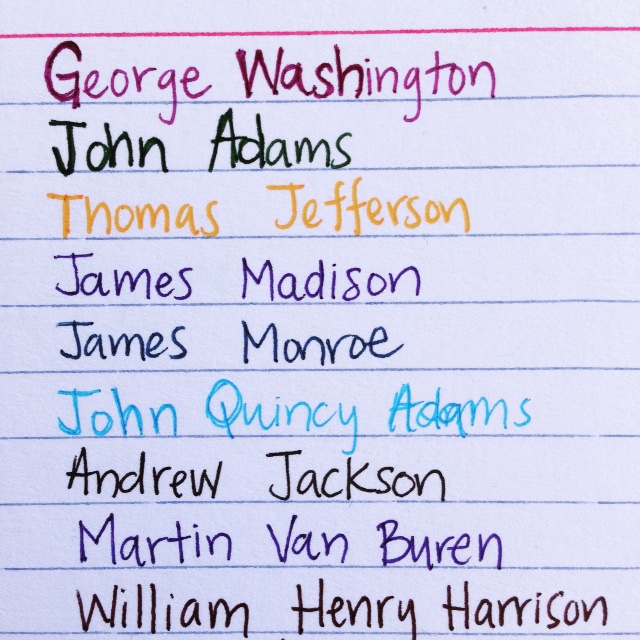 George Washington
John Adams
Thomas Jefferson
James Madison
James Monroe
John Quincy Adams
Andrew Jackson
Martin Van Buren
William Henry Harrison